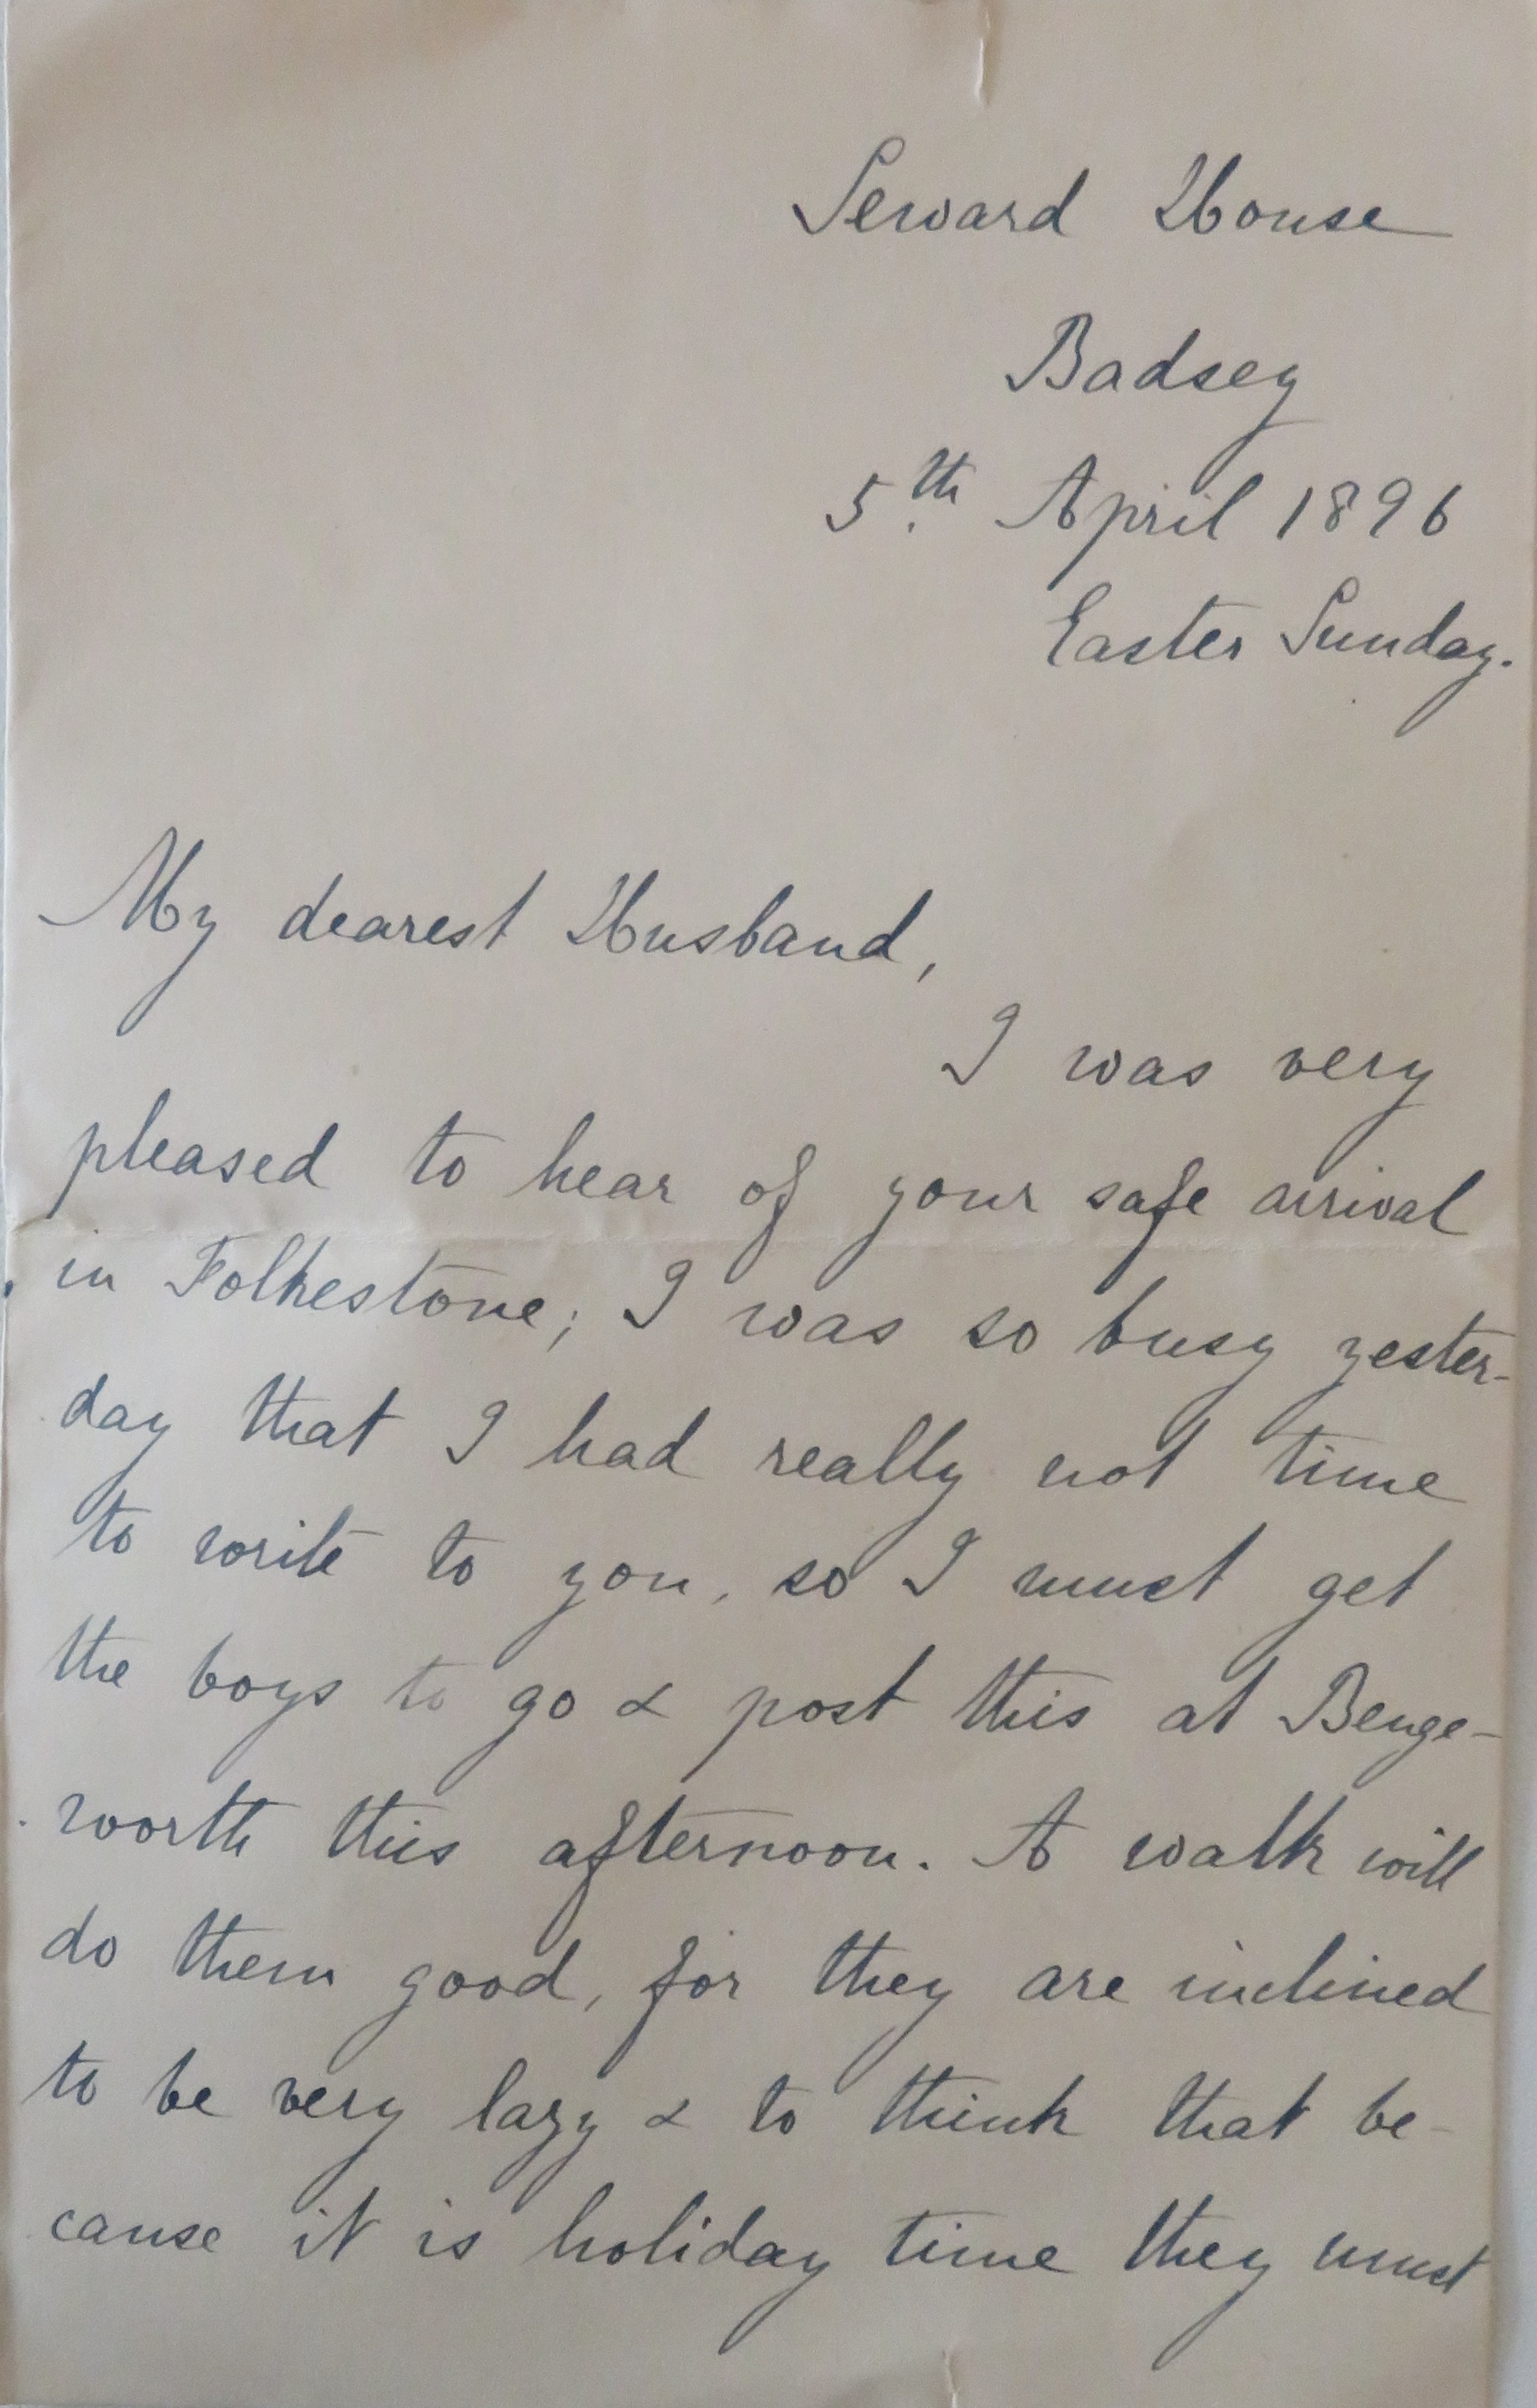 Seward House
Badsey
5th April 1896
Easter Sunday.
My dearest Husband,
I was very
pleased to hear of your safe arrival
in Folkestone; I was so busy yester-
day that I had really not time
to write to you, so I must get
the boys to go & post this at Benge-
worth this afternoon. A walk will
do them good, for they are inclined
to be very lazy & to think that be-
cause it is holiday time they must